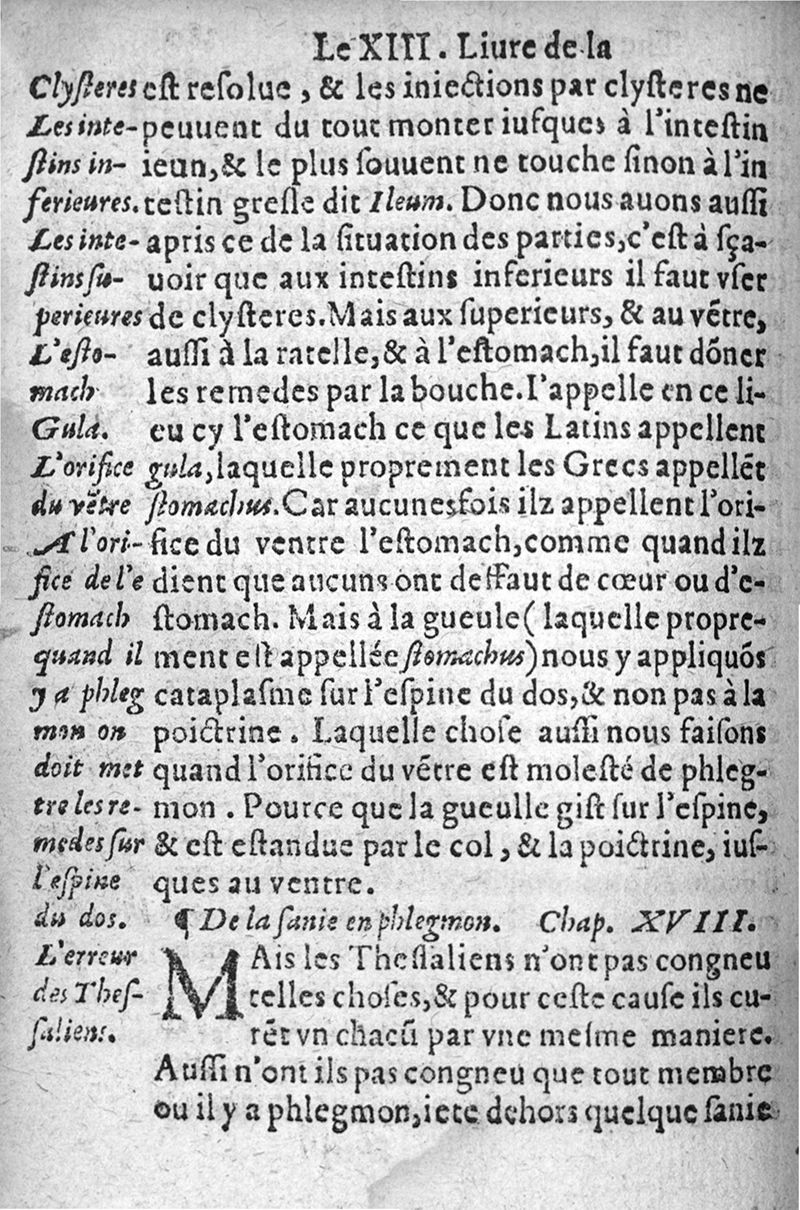 Le XIII. Liure de la
Clysteres
Les inte-
stins in-
ferieures.
Les inte-
stins su-
perieures
L'esto-
mach
Gula.
L'orifice
du vẽtre
A l'ori-
fice de l'e
stomach
quand il
y a phleg
mon on
doit met
tre les re-
medes sur
l'espine
du dos.
L'erreur
des Thes-
saliens.
est resolue, & les iniections par clysteres ne
peuuent du tout monter iusques à l'intestin
ieun,& le plus souuent ne touche sinon à l'in
testin gresle dit Ileum. Donc nous auons aussi
apris ce de la situation des parties,c'est à sça-
uoir que aux intestins inferieurs il faut vser
de clysteres.Mais aux superieurs, & au vẽtre,
aussi à la ratelle,& à l'estomach,il faut dõner
les remedes par la bouche.I'appelle en ce li-
eu cy l'estomach ce que les Latins appellent
gula,laquelle proprement les Grecs appellẽt
stomachus.Car aucunesfois ilz appellent l'ori-
fice du ventre l'estomach,comme quand ilz
dient que aucuns ont deffaut de cœur ou d'e-
stomach. Mais à la gueule( laquelle propre-
ment est appellée stomachus)nous y appliquõs
cataplasme sur l'espine du dos,& non pas à la
poictrine. Laquelle chose aussi nous faisons
quand l'orifice du vẽtre est molesté de phleg-
mon. Pource que la gueulle gist sur l'espine,
& est estandue par le col, & la poictrine, ius-
ques au ventre.
¶ De la sanie en phlegmon. Chap. XVIII.
MAis les Thessaliens n'ont pas congneu
telles choses,& pour ceste cause ils cu-
rẽt vn chacũ par vne mesme maniere.
Aussi n'ont ils pas congneu que tout membre
ou il y a phlegmon,iete dehors quelque sanie